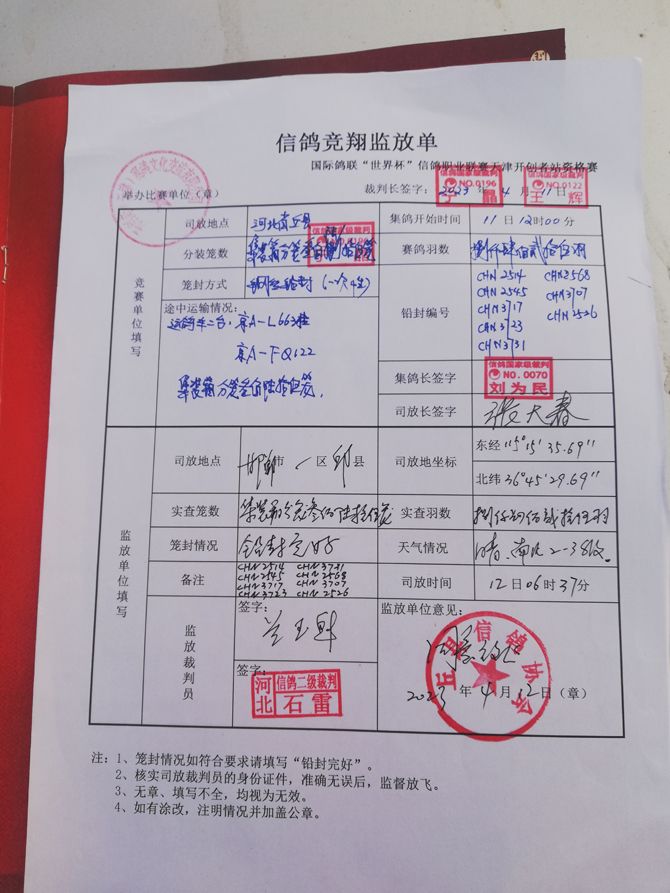 信鸽竞翔监放单
国际鸽联“世界杯”信鸽职业联赛天津开创者站资格赛
举办比赛单位（章） 裁判长签字： 2023 年 4 月 11 日
信鸽国家级裁判 NO.0196
信鸽国家级裁判 NO.0122 王辉
竞赛单位填写
司放地点 河北 集鸽开始时间 11 日 12 时 00 分
分装笼数 赛鸽羽数
笼封方式 铅封编号 CHN 2514 CHN 2568
CHN 2545 CHN 3707
CHN 3717 CHN 2526
CHN 3723
CHN 3731
途中运输情况：
京A-L
京A-FQ122
集鸽长签字 信鸽国家级裁判 NO.0070 刘为民
司放长签字 张大春
监放单位填写
司放地点 邯郸 市 区 县 司放地坐标 东经 115°15'35.69"
北纬 36°45'29.69"
实查笼数 实查羽数
笼封情况 铅封完好 天气情况 晴、南风2-3级
备注 CHN 2514 CHN 3731
CHN 2545 CHN 2568
CHN 3717 CHN 3707
CHN 3723 CHN 2526
司放时间 12 日 06 时 37 分
监放裁判员
签字：
签字：
河北 信鸽二级裁判 石雷
监放单位意见：
同意放飞
2023 年 4 月 12 日（章）
县信鸽协会
注：1、笼封情况如符合要求请填写“铅封完好”。
2、核实司放裁判员的身份证件，准确无误后，监督放飞。
3、无章、填写不全，均视为无效。
4、如有涂改，注明情况并加盖公章。